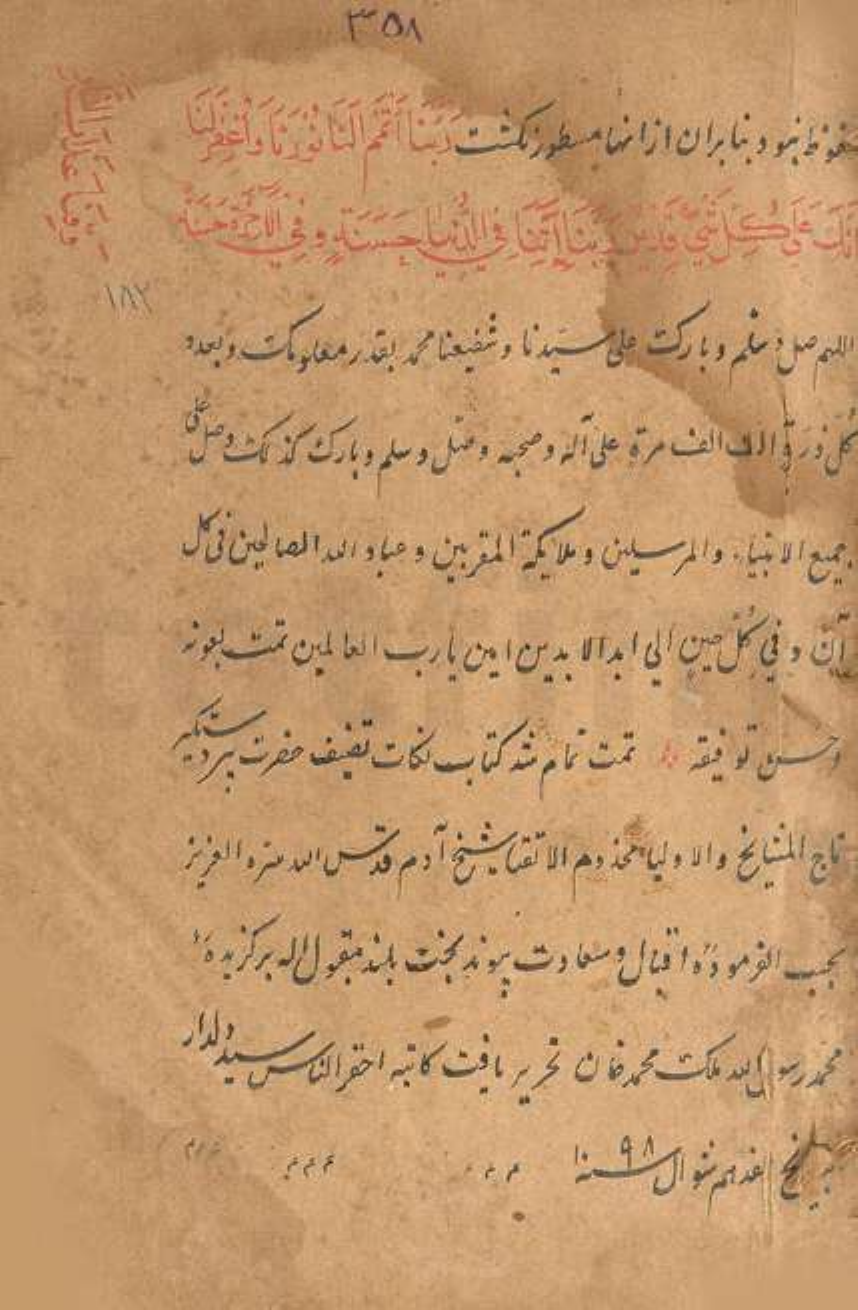 ۳۵۸
محفوظ نبود بنابران ازانها مسطور نکشت رَبَّنَا أَتْمِمْ لَنَا نُورَنَا وَاغْفِرْ لَنَا
اِنَّكَ عَلَى كُلِّ شَيْءٍ قَدِيرٌ رَبَّنَا آتِنَا فِي الدُّنْيَا حَسَنَةً وَفِي الْآخِرَةِ حَسَنَةً
وقنا عذاب النار
۱۸۲
اللهم صل وسلم وبارک علی سیدنا وشفیعنا محمد بقدر معلوماتک وبعدد
کل ذرة الف الف مرة علی آله وصحبه وصل وسلم وبارک کذلک وصل علی
جمیع الانبیاء والمرسلین وملایکة المقربین وعباد الله الصالحین فی کل
آن وفی کل حین الی ابد الابدین امین یارب العالمین تمت بعونه
وحسن توفیقه تمت تمام شد کتاب نکات تصنیف حضرت پیر دستکیر
تاج المشایخ والاولیا مخدوم الاتقیا شیخ آدم قدس الله سره العزیز
بحسب الفرموده اقبال وسعادت پیوند بخت بلند مقبول اله برکزیدهٔ
محمد رسول الله ملک محمد خان تحریر یافت کاتبه احقر الناس سید دلدار
بتاریخ هفدهم شوال سنه ۱۰۹۸